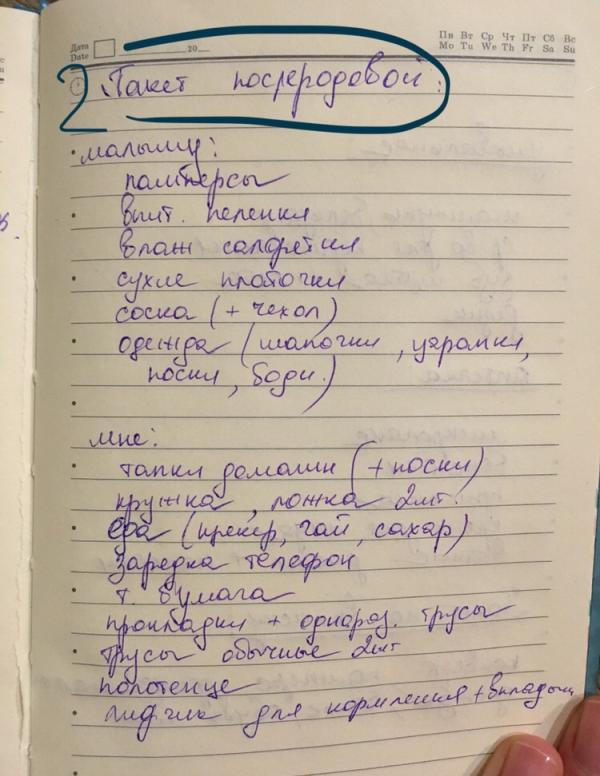 Дата
Date
20
Пн Вт Ср Чт Пт Сб Вс
Mo Tu We Th Fr Sa Su
2 Пакет послеродовой:
малышу:
памперсы
впит. пеленки
влаж салфетки
сухие платочки
соска (+ чехол)
одежда (шапочки, царапки,
носки, боди.)
мне:
тапки домашн (+ носки)
кружка, ложка 2шт.
еда (крекер, чай, сахар)
зарядка телефон
т. бумага
прокладки + однораз. трусы
трусы обычные 2шт
полотенце
лифчик для кормления + вкладыши